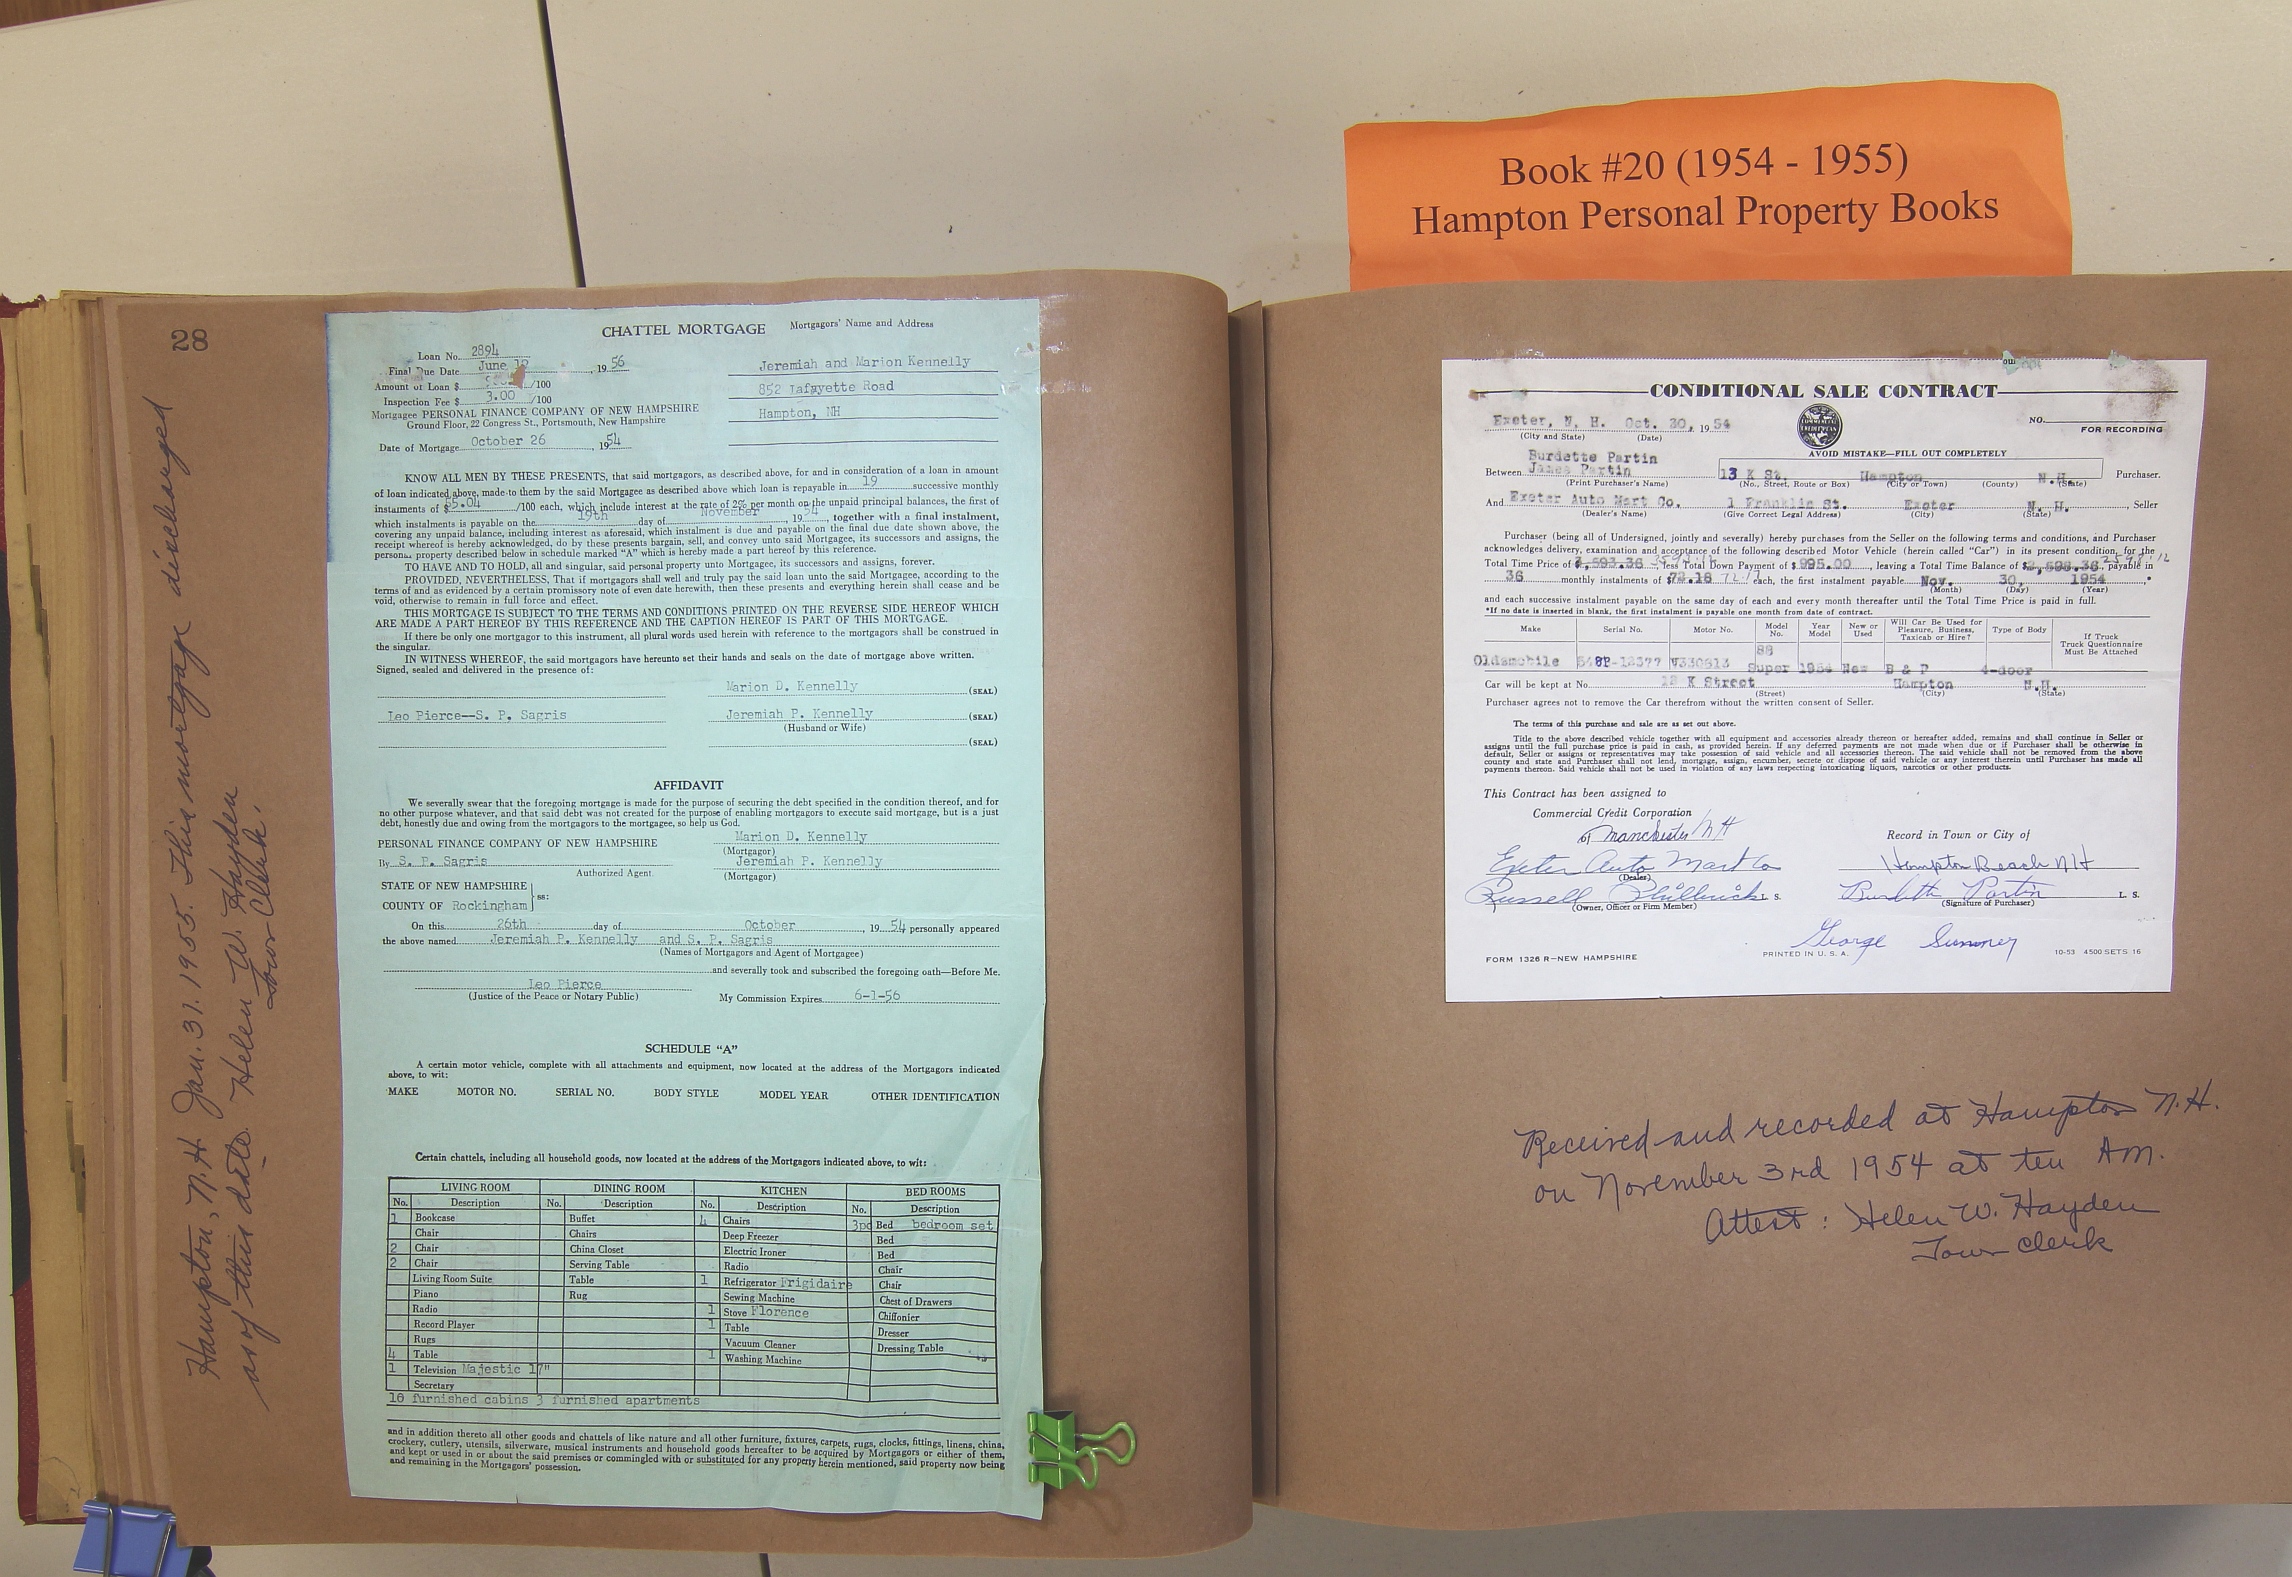 Book #20 (1954 - 1955)
Hampton Personal Property Books
28
Hampton, N.H. Jan. 31. 1955. This mortgage discharged
as of this date. Helen W. Hayden
Town Clerk.
CHATTEL MORTGAGE
Mortgagors' Name and Address
Loan No. 2894
Final Due Date June 19 56
Amount of Loan $ /100
Inspection Fee $ 3.00 /100
Mortgagee PERSONAL FINANCE COMPANY OF NEW HAMPSHIRE
Ground Floor, 22 Congress St., Portsmouth, New Hampshire
Date of Mortgage October 26, 1954
Jeremiah and Marion Kennelly
852 Lafayette Road
Hampton, NH
KNOW ALL MEN BY THESE PRESENTS, that said mortgagors, as described above, for and in consideration of a loan in amount
of loan indicated above, made to them by the said Mortgagee as described above which loan is repayable in 19 successive monthly
instalments of $55.04 /100 each, which include interest at the rate of 2% per month on the unpaid principal balances, the first of
which instalments is payable on the 19th day of November, 1954, together with a final instalment,
covering any unpaid balance, including interest as aforesaid, which instalment is due and payable on the final due date shown above, the
receipt whereof is hereby acknowledged, do by these presents bargain, sell, and convey unto said Mortgagee, its successors and assigns, the
personal property described below in schedule marked "A" which is hereby made a part hereof by this reference.
TO HAVE AND TO HOLD, all and singular, said personal property unto Mortgagee, its successors and assigns, forever.
PROVIDED, NEVERTHELESS, That if mortgagors shall well and truly pay the said loan unto the said Mortgagee, according to the
terms of and as evidenced by a certain promissory note of even date herewith, then these presents and everything herein shall cease and be
void, otherwise to remain in full force and effect.
THIS MORTGAGE IS SUBJECT TO THE TERMS AND CONDITIONS PRINTED ON THE REVERSE SIDE HEREOF WHICH
ARE MADE A PART HEREOF BY THIS REFERENCE AND THE CAPTION HEREOF IS PART OF THIS MORTGAGE.
If there be only one mortgagor to this instrument, all plural words used herein with reference to the mortgagors shall be construed in
the singular.
IN WITNESS WHEREOF, the said mortgagors have hereunto set their hands and seals on the date of mortgage above written.
Signed, sealed and delivered in the presence of:
Marion D. Kennelly (SEAL)
Leo Pierce--S. P. Sagris Jeremiah P. Kennelly (SEAL)
(Husband or Wife)
(SEAL)
AFFIDAVIT
We severally swear that the foregoing mortgage is made for the purpose of securing the debt specified in the condition thereof, and for
no other purpose whatever, and that said debt was not created for the purpose of enabling mortgagors to execute said mortgage, but is a just
debt, honestly due and owing from the mortgagors to the mortgagee, so help us God.
Marion D. Kennelly
PERSONAL FINANCE COMPANY OF NEW HAMPSHIRE (Mortgagor)
By S. P. Sagris Jeremiah P. Kennelly
Authorized Agent. (Mortgagor)
STATE OF NEW HAMPSHIRE
ss:
COUNTY OF Rockingham
On this 26th day of October, 1954 personally appeared
the above named Jeremiah P. Kennelly and S. P. Sagris
(Names of Mortgagors and Agent of Mortgagee)
and severally took and subscribed the foregoing oath—Before Me.
Leo Pierce
(Justice of the Peace or Notary Public) My Commission Expires 6-1-56
SCHEDULE "A"
A certain motor vehicle, complete with all attachments and equipment, now located at the address of the Mortgagors indicated
above, to wit:
MAKE MOTOR NO. SERIAL NO. BODY STYLE MODEL YEAR OTHER IDENTIFICATION
Certain chattels, including all household goods, now located at the address of the Mortgagors indicated above, to wit:
LIVING ROOM DINING ROOM KITCHEN BED ROOMS
No. Description No. Description No. Description No. Description
1 Bookcase Buffet 4 Chairs 3pc Bed bedroom set
Chair Chairs Deep Freezer Bed
2 Chair China Closet Electric Ironer Bed
2 Chair Serving Table Radio Chair
Living Room Suite Table 1 Refrigerator Frigidaire Chair
Piano Rug Sewing Machine Chest of Drawers
Radio 1 Stove Florence Chiffonier
Record Player 1 Table Dresser
Rugs Vacuum Cleaner Dressing Table
4 Table 1 Washing Machine
1 Television Majestic 17"
Secretary
10 furnished cabins 3 furnished apartments
and in addition thereto all other goods and chattels of like nature and all other furniture, fixtures, carpets, rugs, clocks, fittings, linens, china,
crockery, cutlery, utensils, silverware, musical instruments and household goods hereafter to be acquired by Mortgagors or either of them,
and kept or used in or about the said premises or commingled with or substituted for any property herein mentioned, said property now being
and remaining in the Mortgagors' possession.
CONDITIONAL SALE CONTRACT
Exeter, N. H. Oct. 30, 1954 NO.
(City and State) (Date) FOR RECORDING
AVOID MISTAKE—FILL OUT COMPLETELY
Burdette Partin
Between James Partin 13 K St. Hampton N.H. Purchaser.
(Print Purchaser's Name) (No., Street, Route or Box) (City or Town) (County) (State)
And Exeter Auto Mart Co. 1 Franklin St. Exeter N. H., Seller
(Dealer's Name) (Give Correct Legal Address) (City) (State)
Purchaser (being all of Undersigned, jointly and severally) hereby purchases from the Seller on the following terms and conditions, and Purchaser
acknowledges delivery, examination and acceptance of the following described Motor Vehicle (herein called "Car") in its present condition, for the
Total Time Price of $ , less Total Down Payment of $995.00, leaving a Total Time Balance of $2,598.36 2598.12, payable in
36 monthly instalments of $72.18 72.17 each, the first instalment payable Nov. 30, 1954.*
(Month) (Day) (Year)
and each successive instalment payable on the same day of each and every month thereafter until the Total Time Price is paid in full.
*If no date is inserted in blank, the first instalment is payable one month from date of contract.
Make Serial No. Motor No. Model No. Year Model New or Used Will Car Be Used for Pleasure, Business, Taxicab or Hire? Type of Body If Truck Truck Questionnaire Must Be Attached
88
Oldsmobile 548B-12377 V330813 Super 1954 New B & P 4-door
Car will be kept at No. 13 K Street Hampton N.H.
(Street) (City) (State)
Purchaser agrees not to remove the Car therefrom without the written consent of Seller.
The terms of this purchase and sale are as set out above.
Title to the above described vehicle together with all equipment and accessories already thereon or hereafter added, remains and shall continue in Seller or
assigns until the full purchase price is paid in cash, as provided herein. If any deferred payments are not made when due or if Purchaser shall be otherwise in
default, Seller or assigns or representatives may take possession of said vehicle and all accessories thereon. The said vehicle shall not be removed from the above
county and state and Purchaser shall not lend, mortgage, assign, encumber, secrete or dispose of said vehicle or any interest therein until Purchaser has made all
payments thereon. Said vehicle shall not be used in violation of any laws respecting intoxicating liquors, narcotics or other products.
This Contract has been assigned to
Commercial Credit Corporation
of Manchester NH Record in Town or City of
Exeter Auto Mart Co Hampton Beach NH
(Dealer)
Russell Philbrick L. S. Burdette Partin L. S.
(Owner, Officer or Firm Member) (Signature of Purchaser)
George Sumner
FORM 1326 R—NEW HAMPSHIRE PRINTED IN U. S. A. 10-53 4500 SETS 16
Received and recorded at Hampton N.H.
on November 3rd 1954 at ten AM.
Attest: Helen W. Hayden
Town Clerk